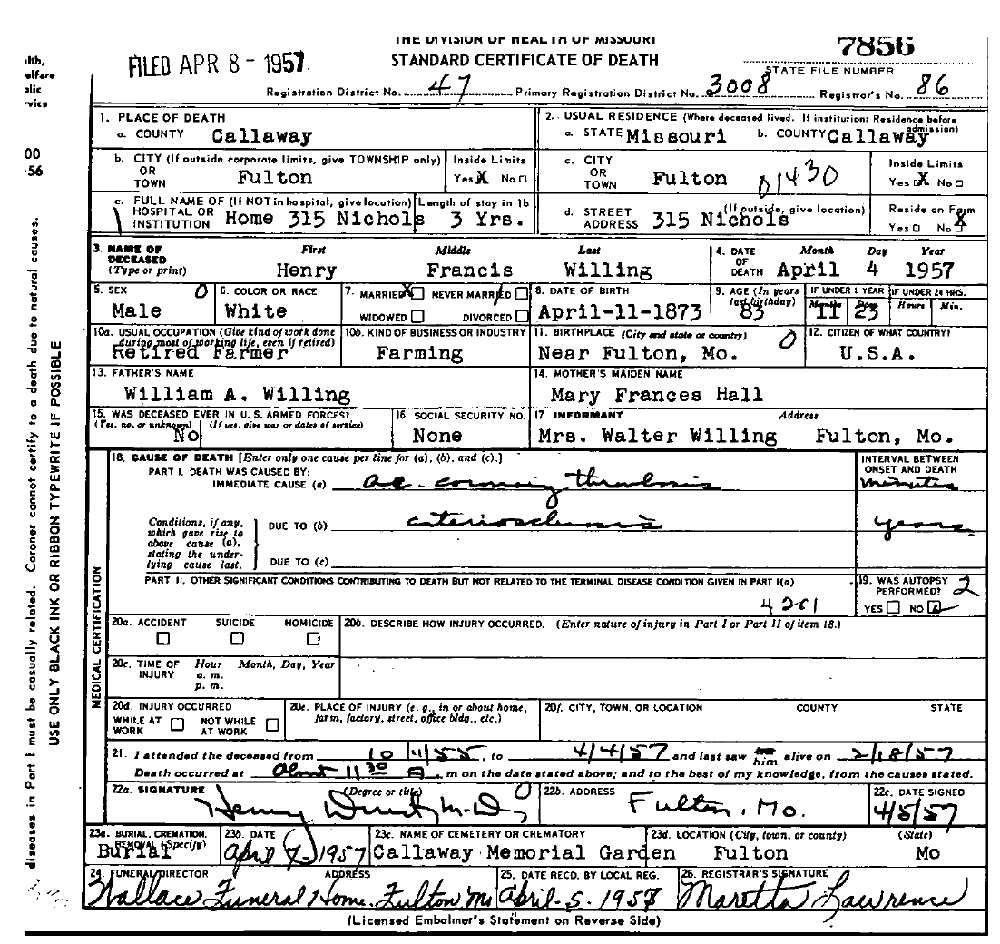 THE DIVISION OF HEALTH OF MISSOURI
7856
FILED APR 8 - 1957
STANDARD CERTIFICATE OF DEATH
STATE FILE NUMBER
Registration District No. 47 Primary Registration District No. 3008 Registrar's No. 86
1. PLACE OF DEATH
a. COUNTY Callaway
2. USUAL RESIDENCE (Where deceased lived. If institution: Residence before admission)
a. STATE Missouri b. COUNTY Callaway
b. CITY (If outside corporate limits, give TOWNSHIP only) OR TOWN Fulton
Inside Limits Yes X No
c. CITY OR TOWN Fulton 01430
Inside Limits Yes X No
c. FULL NAME OF (If NOT in hospital, give location) HOSPITAL OR INSTITUTION Home 315 Nichols
Length of stay in 1b 3 Yrs.
d. STREET ADDRESS (If outside, give location) 315 Nichols
Reside on Farm Yes No X
3. NAME OF DECEASED (Type or print)
First Middle Last
Henry Francis Willing
4. DATE OF DEATH Month Day Year
April 4 1957
5. SEX 0
Male
6. COLOR OR RACE
White
7. MARRIED X NEVER MARRIED
WIDOWED DIVORCED
8. DATE OF BIRTH
April-11-1873
9. AGE (In years last birthday)
83
IF UNDER 1 YEAR Months Days
11 23
IF UNDER 24 HRS. Hours Min.
10a. USUAL OCCUPATION (Give kind of work done during most of working life, even if retired)
Retired Farmer
10b. KIND OF BUSINESS OR INDUSTRY
Farming
11. BIRTHPLACE (City and state or country) 0
Near Fulton, Mo.
12. CITIZEN OF WHAT COUNTRY?
U.S.A.
13. FATHER'S NAME
William A. Willing
14. MOTHER'S MAIDEN NAME
Mary Frances Hall
15. WAS DECEASED EVER IN U.S. ARMED FORCES?
(Yes, no, or unknown) (If yes, give war or dates of service)
No
16 SOCIAL SECURITY NO.
None
17 INFORMANT Address
Mrs. Walter Willing Fulton, Mo.
18. CAUSE OF DEATH [Enter only one cause per line for (a), (b), and (c).]
PART I. DEATH WAS CAUSED BY:
IMMEDIATE CAUSE (a) ac. coronary thrombosis
INTERVAL BETWEEN ONSET AND DEATH
minutes
Conditions, if any, which gave rise to above cause (a), stating the underlying cause last.
DUE TO (b) arteriosclerosis years
DUE TO (c)
PART II. OTHER SIGNIFICANT CONDITIONS CONTRIBUTING TO DEATH BUT NOT RELATED TO THE TERMINAL DISEASE CONDITION GIVEN IN PART I(a)
4201
19. WAS AUTOPSY PERFORMED? 2
YES NO
20a. ACCIDENT SUICIDE HOMICIDE
20b. DESCRIBE HOW INJURY OCCURRED. (Enter nature of injury in Part I or Part II of item 18.)
20c. TIME OF INJURY Hour Month, Day, Year
a. m.
p. m.
20d. INJURY OCCURRED
WHILE AT WORK NOT WHILE AT WORK
20e. PLACE OF INJURY (e. g., in or about home, farm, factory, street, office bldg., etc.)
20f. CITY, TOWN, OR LOCATION COUNTY STATE
21. I attended the deceased from 10/4/55, to 4/4/57 and last saw him alive on 2/18/57
Death occurred at about 11:30 A. m on the date stated above; and to the best of my knowledge, from the causes stated.
22a. SIGNATURE (Degree or title)
Henry M.D. 0
22b. ADDRESS
Fulton, Mo.
22c. DATE SIGNED
4/5/57
23a. BURIAL, CREMATION, REMOVAL (Specify)
Burial
23b. DATE
April 7-1957
23c. NAME OF CEMETERY OR CREMATORY
Callaway Memorial Garden
23d. LOCATION (City, town, or county) (State)
Fulton Mo
24. FUNERAL DIRECTOR ADDRESS
Wallace Funeral Home, Fulton Mo
25. DATE RECD. BY LOCAL REG.
April-5-1957
26. REGISTRAR'S SIGNATURE
Maretta Lawrence
(Licensed Embalmer's Statement on Reverse Side)
MEDICAL CERTIFICATION
USE ONLY BLACK INK OR RIBBON TYPEWRITE IF POSSIBLE
diseases in Part I must be casually related. Coroner cannot certify to a death due to natural causes.
lth,
elfare
blic
rvice
00
56